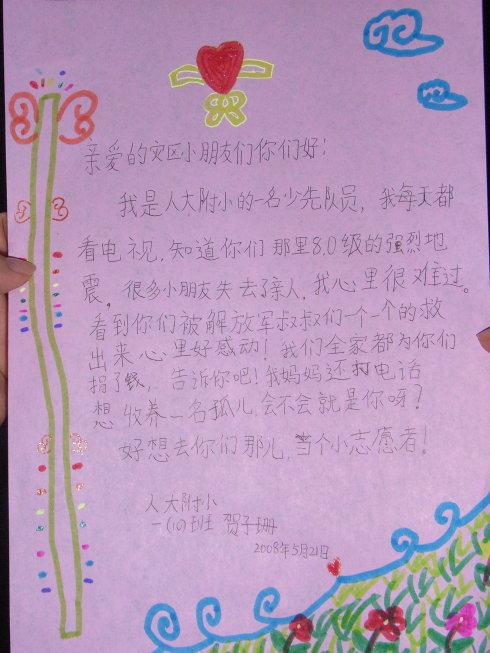 亲爱的灾区小朋友们你们好!
我是人大附小的一名少先队员,我每天都
看电视,知道你们那里8.0级的强烈地
震。很多小朋友失去了亲人,我心里很难过。
看到你们被解放军叔叔们一个一个的救
出来心里好感动!我们全家都为你们
捐了钱,告诉你吧!我妈妈还打电话
想收养一名孤儿,会不会就是你呀?
好想去你们那儿,当个小志愿者!
人大附小
一(10)班 贺子珊
2008年5月21日